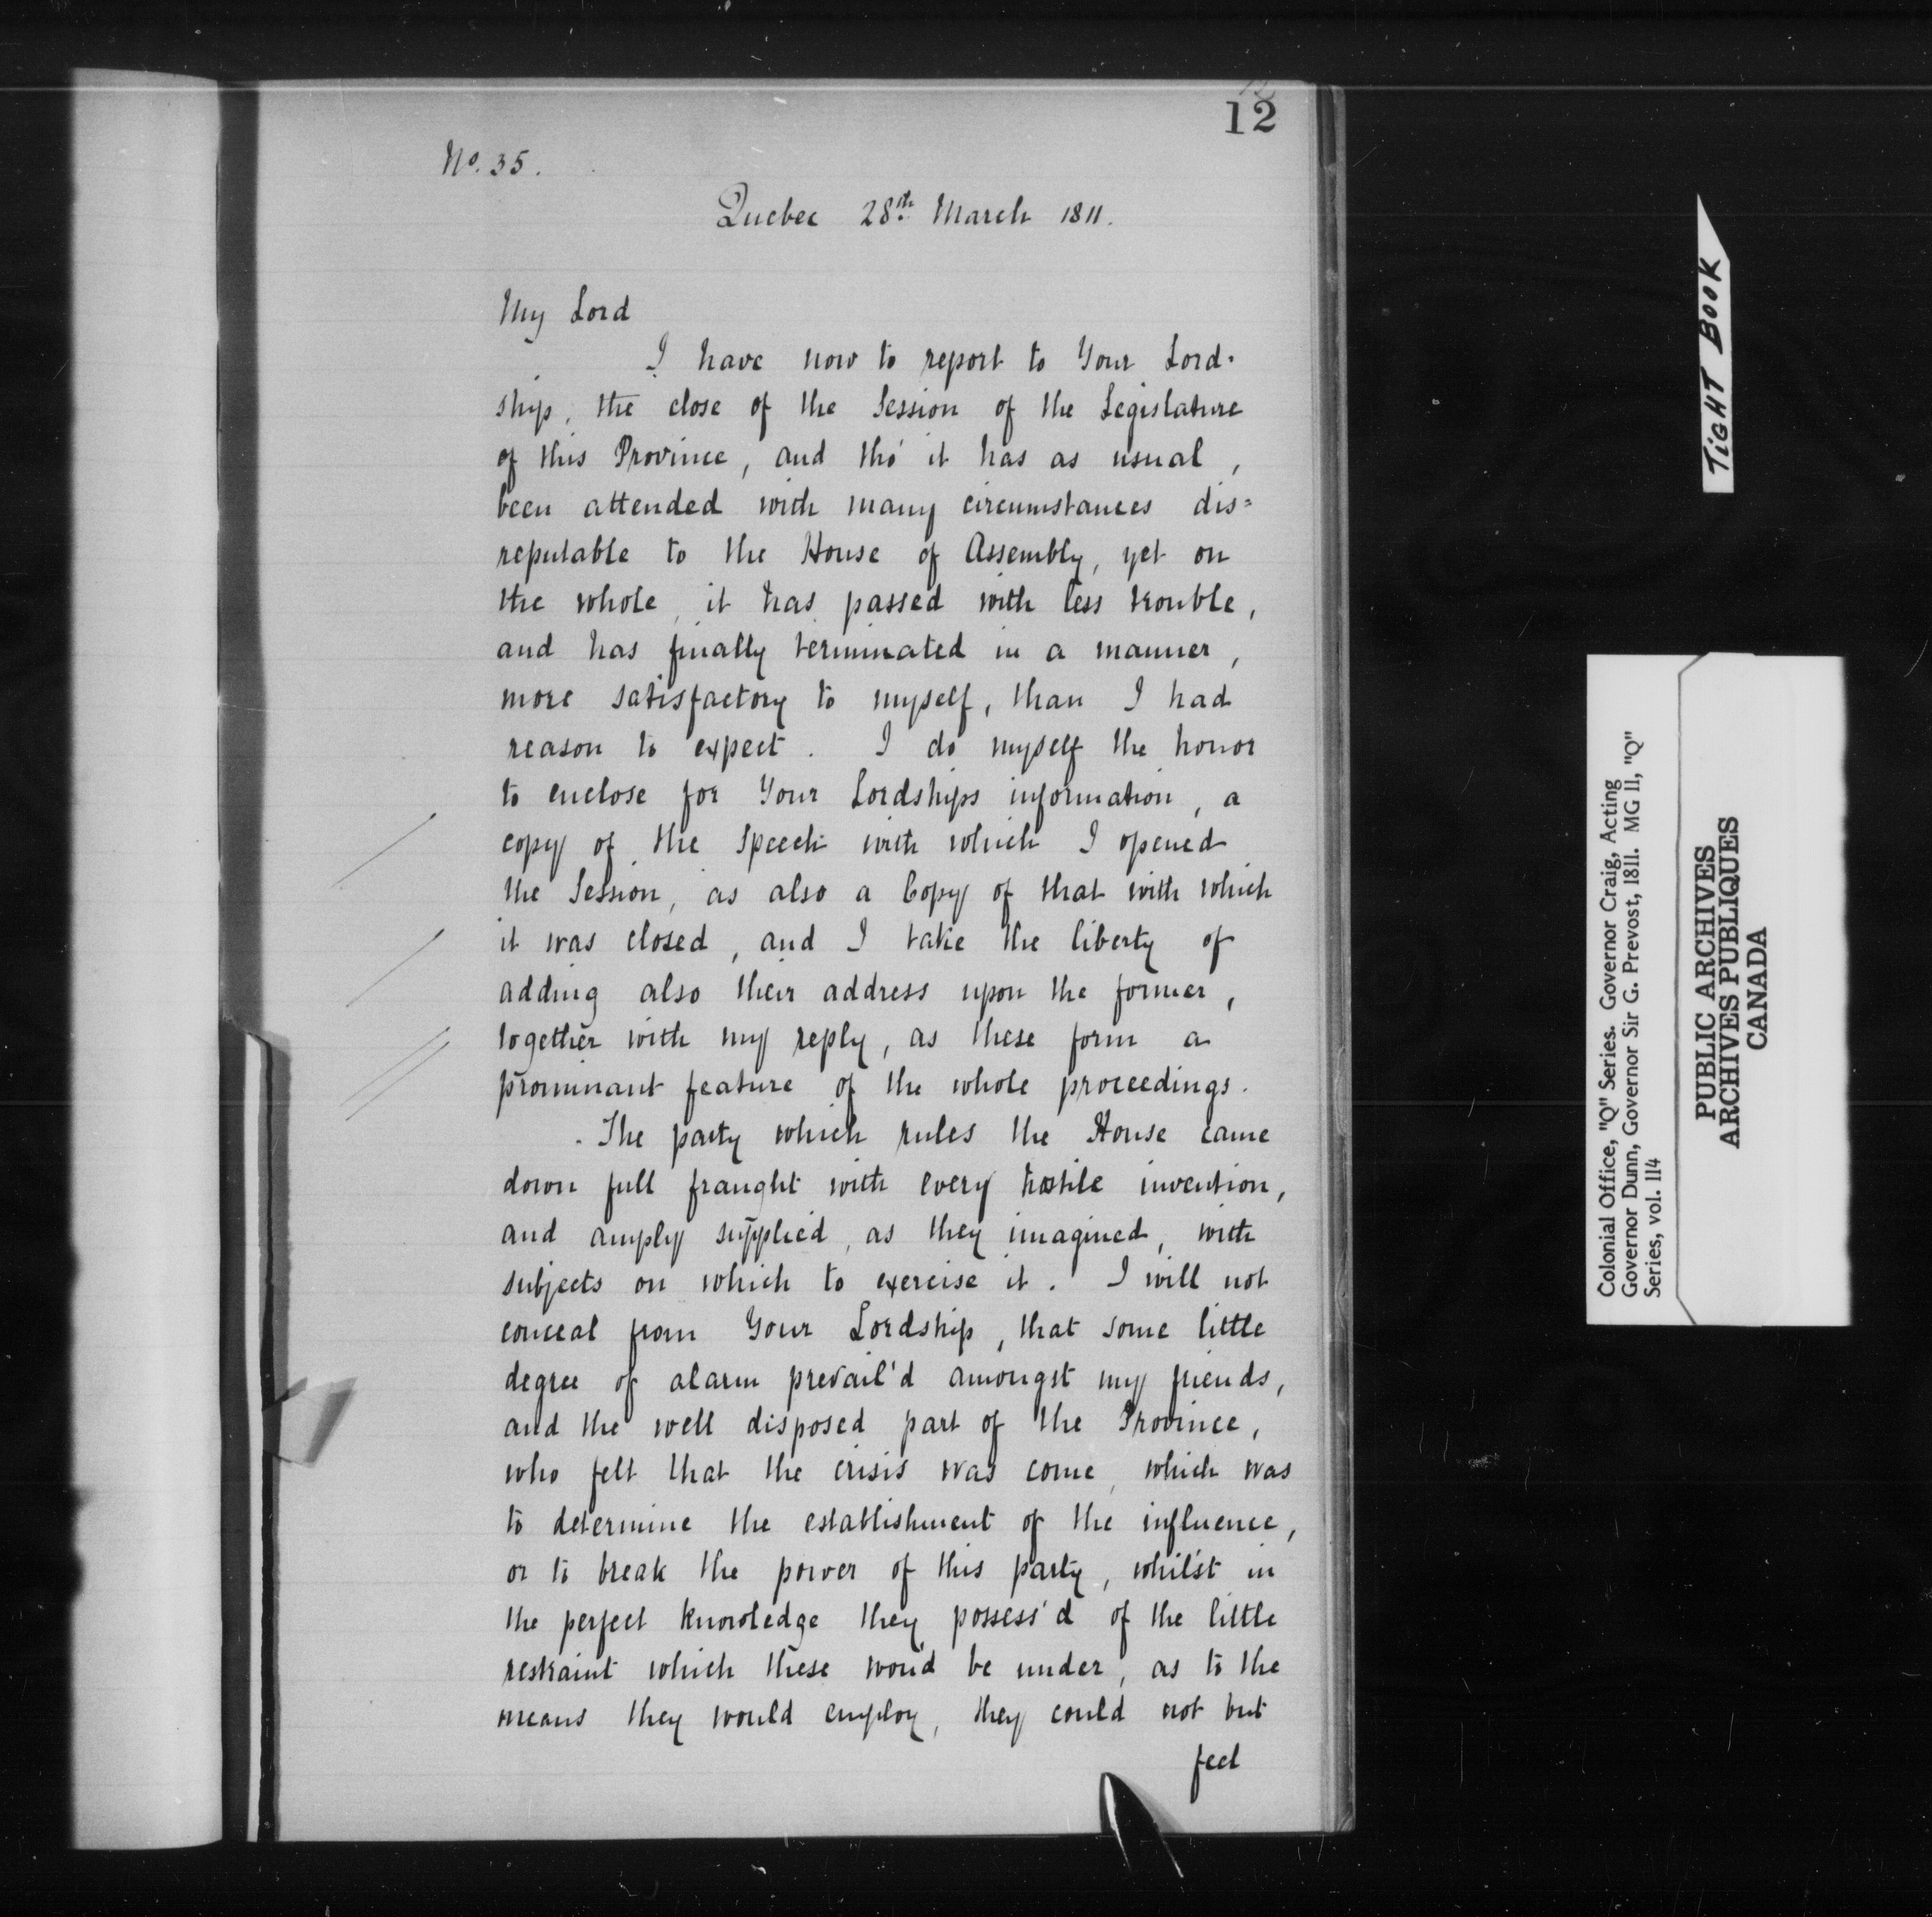 12
No. 35.
Quebec 28th March 1811.
My Lord
I have now to report to Your Lord-
ship, the close of the Session of the Legislature
of this Province, and tho' it has as usual,
been attended with many circumstances dis=
reputable to the House of Assembly, yet on
the whole, it has passed with less trouble,
and has finally terminated in a manner,
more satisfactory to myself, than I had
reason to expect. I do myself the honor
to enclose for Your Lordships information, a
copy of the Speech with which I opened
the Session, as also a Copy of that with which
it was closed, and I take the liberty of
adding also their address upon the former,
together with my reply, as these form a
prominant feature of the whole proceedings.
The party which rules the House came
down full fraught with every hostile invention,
and amply supplied, as they imagined, with
subjects on which to exercise it. I will not
conceal from Your Lordship, that some little
degree of alarm prevail'd amongst my friends,
and the well disposed part of the Province,
who felt that the crisis was come, which was
to determine the establishment of the influence,
or to break the power of this party, whilst in
the perfect knowledge they possess'd of the little
restraint which these wou'd be under, as to the
means they would employ, they could not but
feel
TIGHT BOOK
Colonial Office, "Q" Series. Governor Craig, Acting
Governor Dunn, Governor Sir G. Prevost, 1811. MG 11, "Q"
Series, vol. 114
PUBLIC ARCHIVES
ARCHIVES PUBLIQUES
CANADA